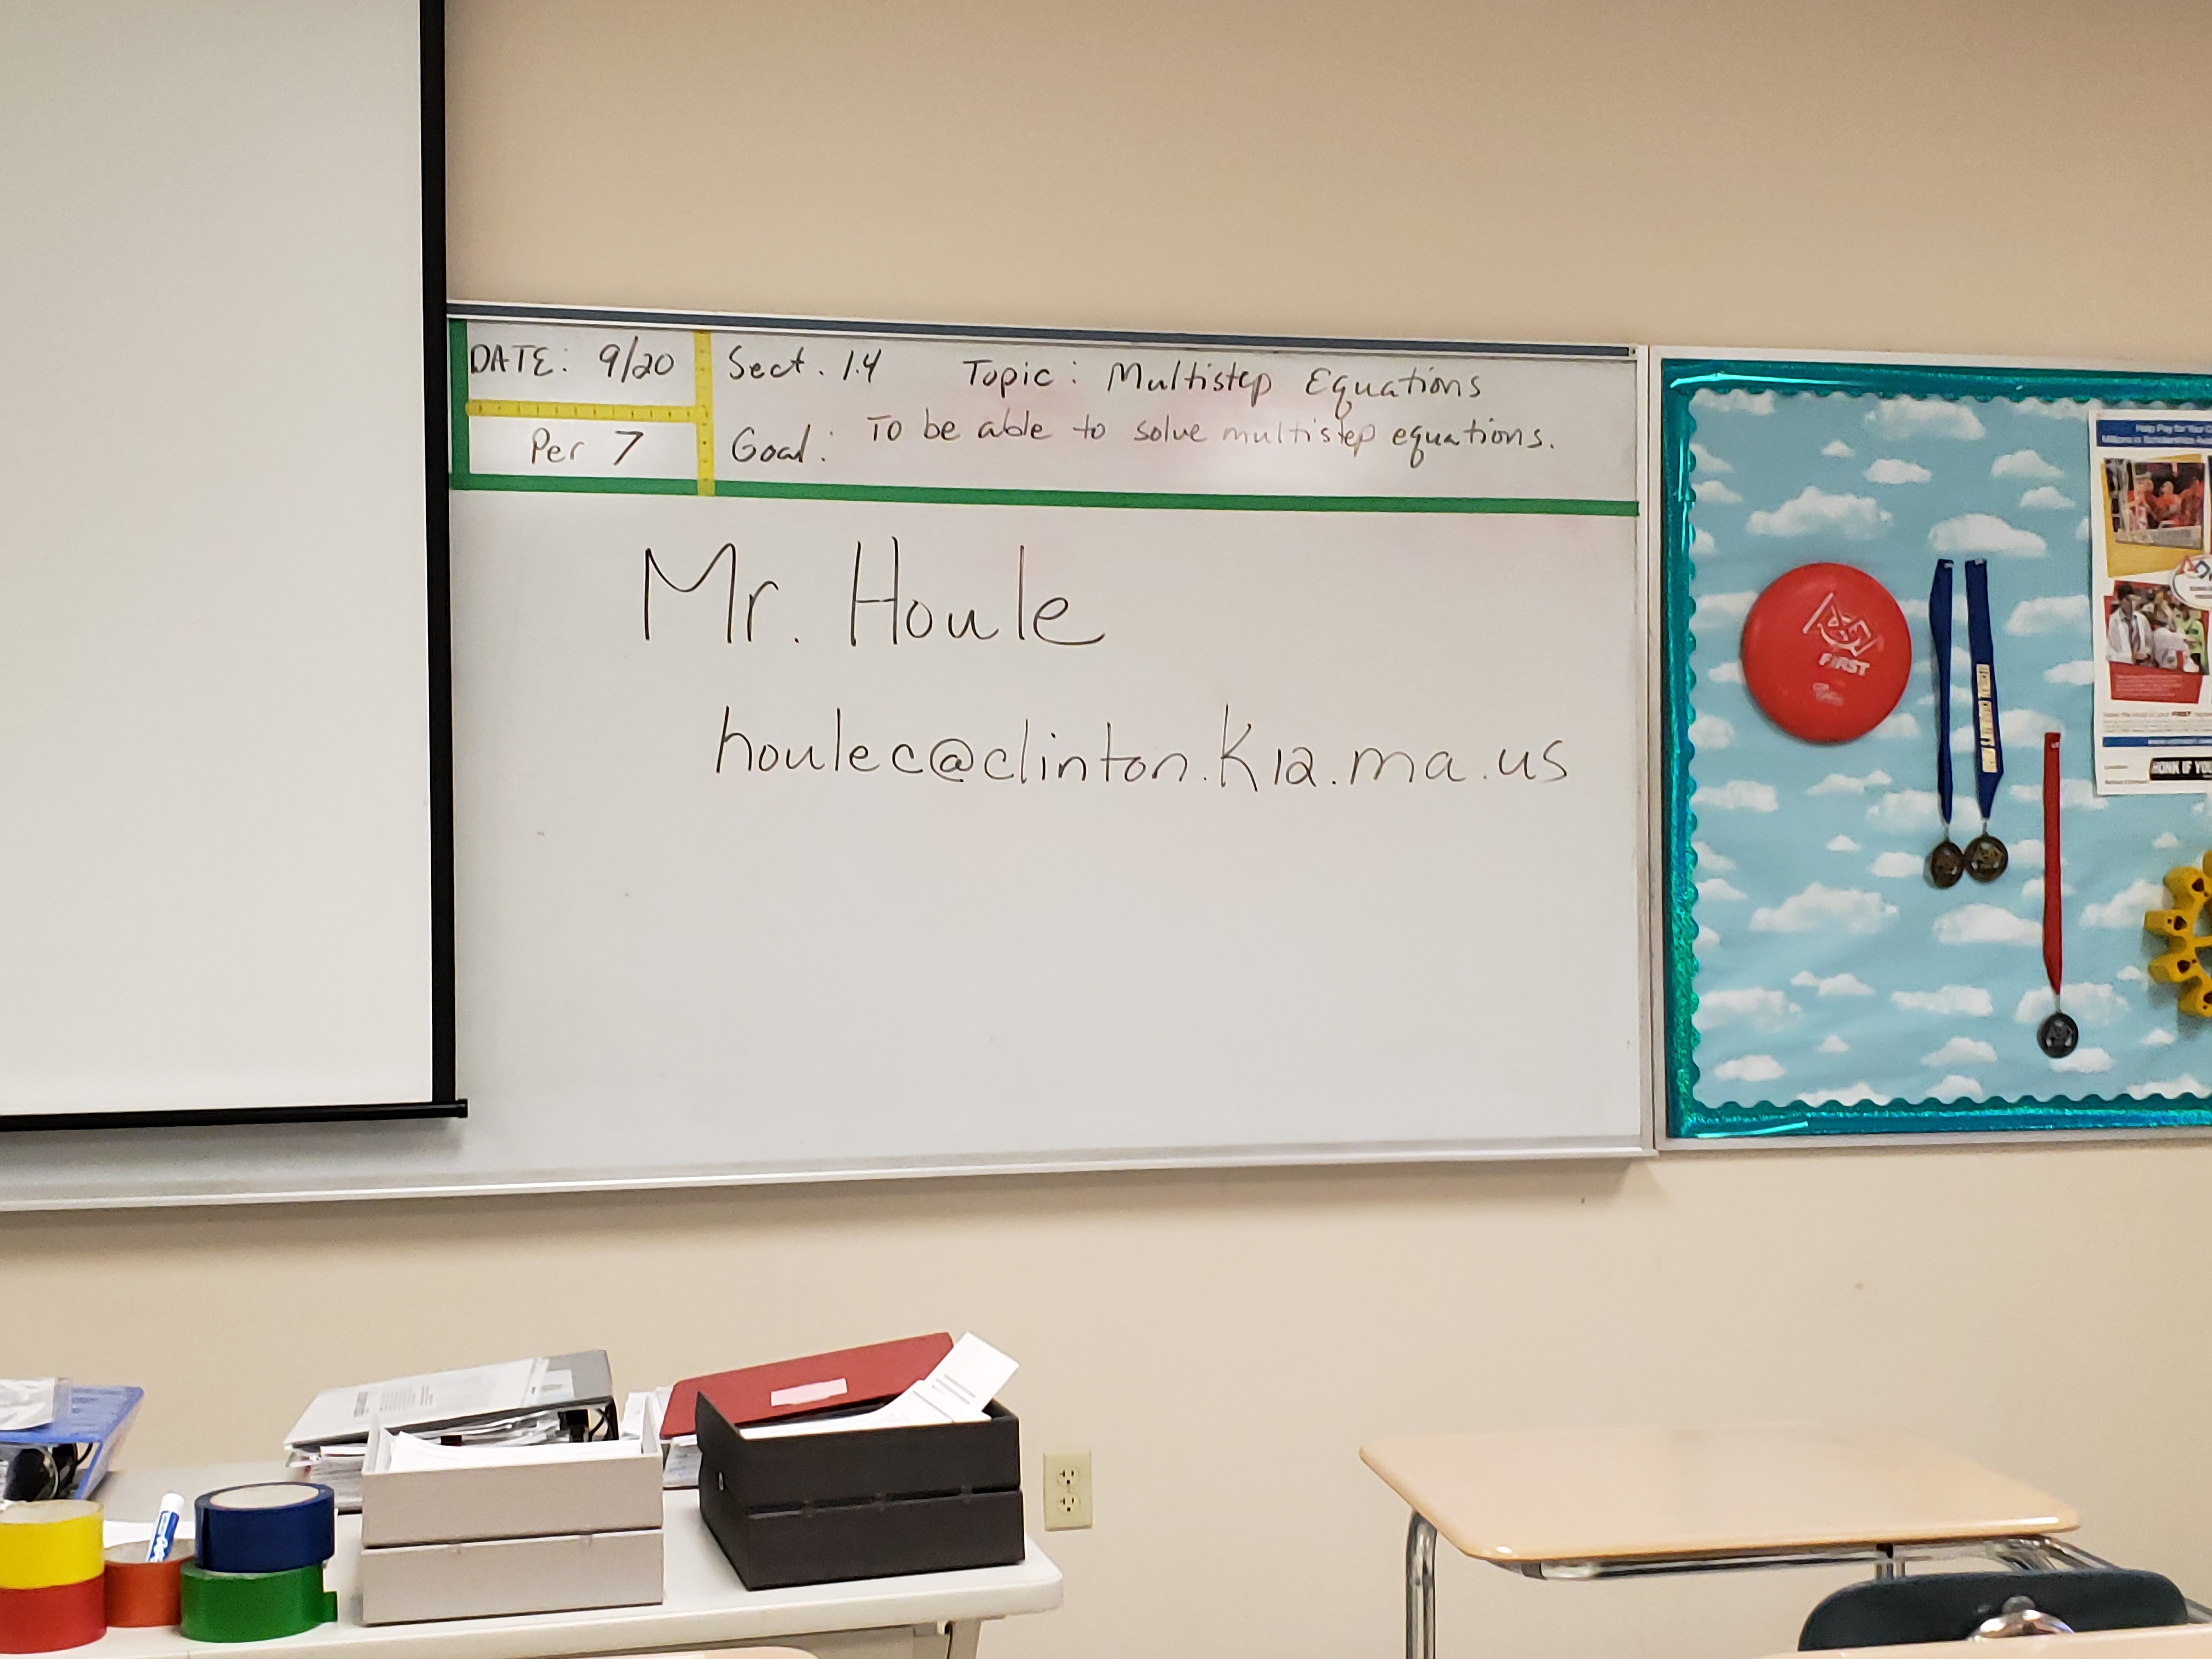 DATE: 9/20
Per 7
Sect. 1.4 Topic: Multistep Equations
Goal: To be able to solve multistep equations.
Mr. Houle
houlec@clinton.k12.ma.us
FIRST
Help Pay for Your
HONK IF YOU